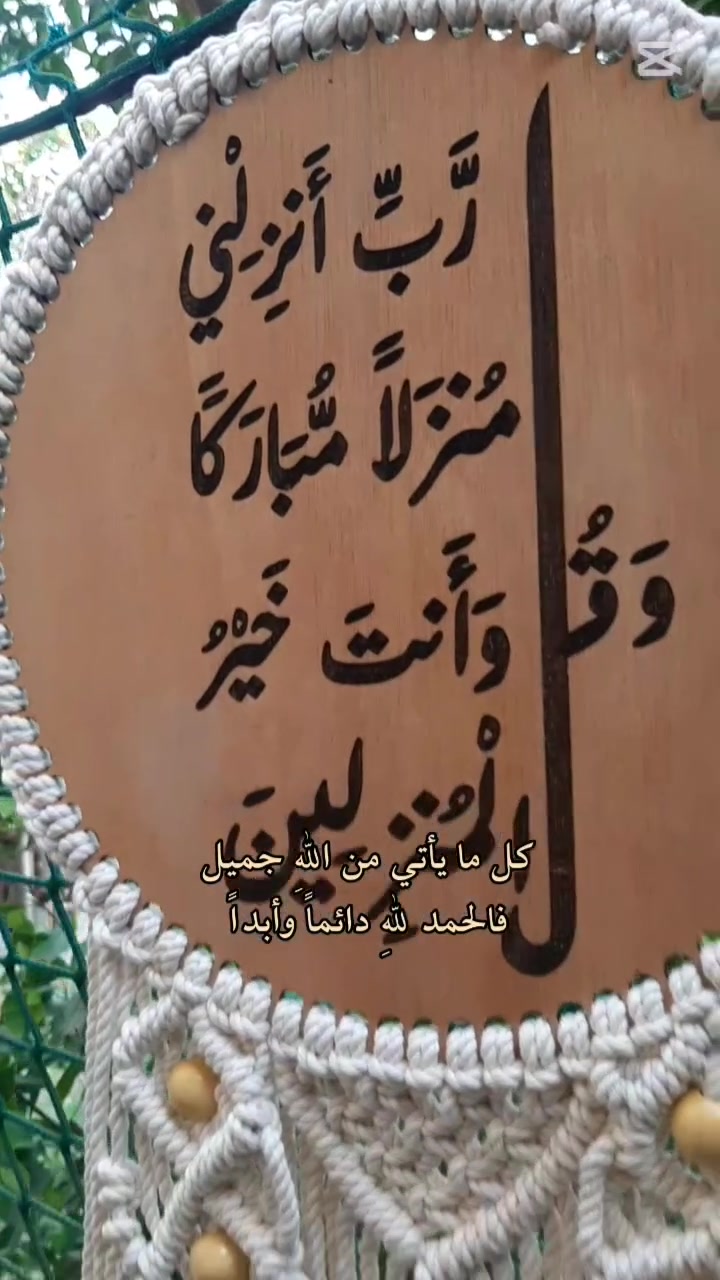 وَقُل
رَّبِّ أَنزِلْنِي
مُنزَلًا مُّبَارَكًا
وَأَنتَ خَيْرُ
الْمُنزِلِينَ
كل ما يأتي من اللهِ جميل
فالحمد للهِ دائماً وأبداً